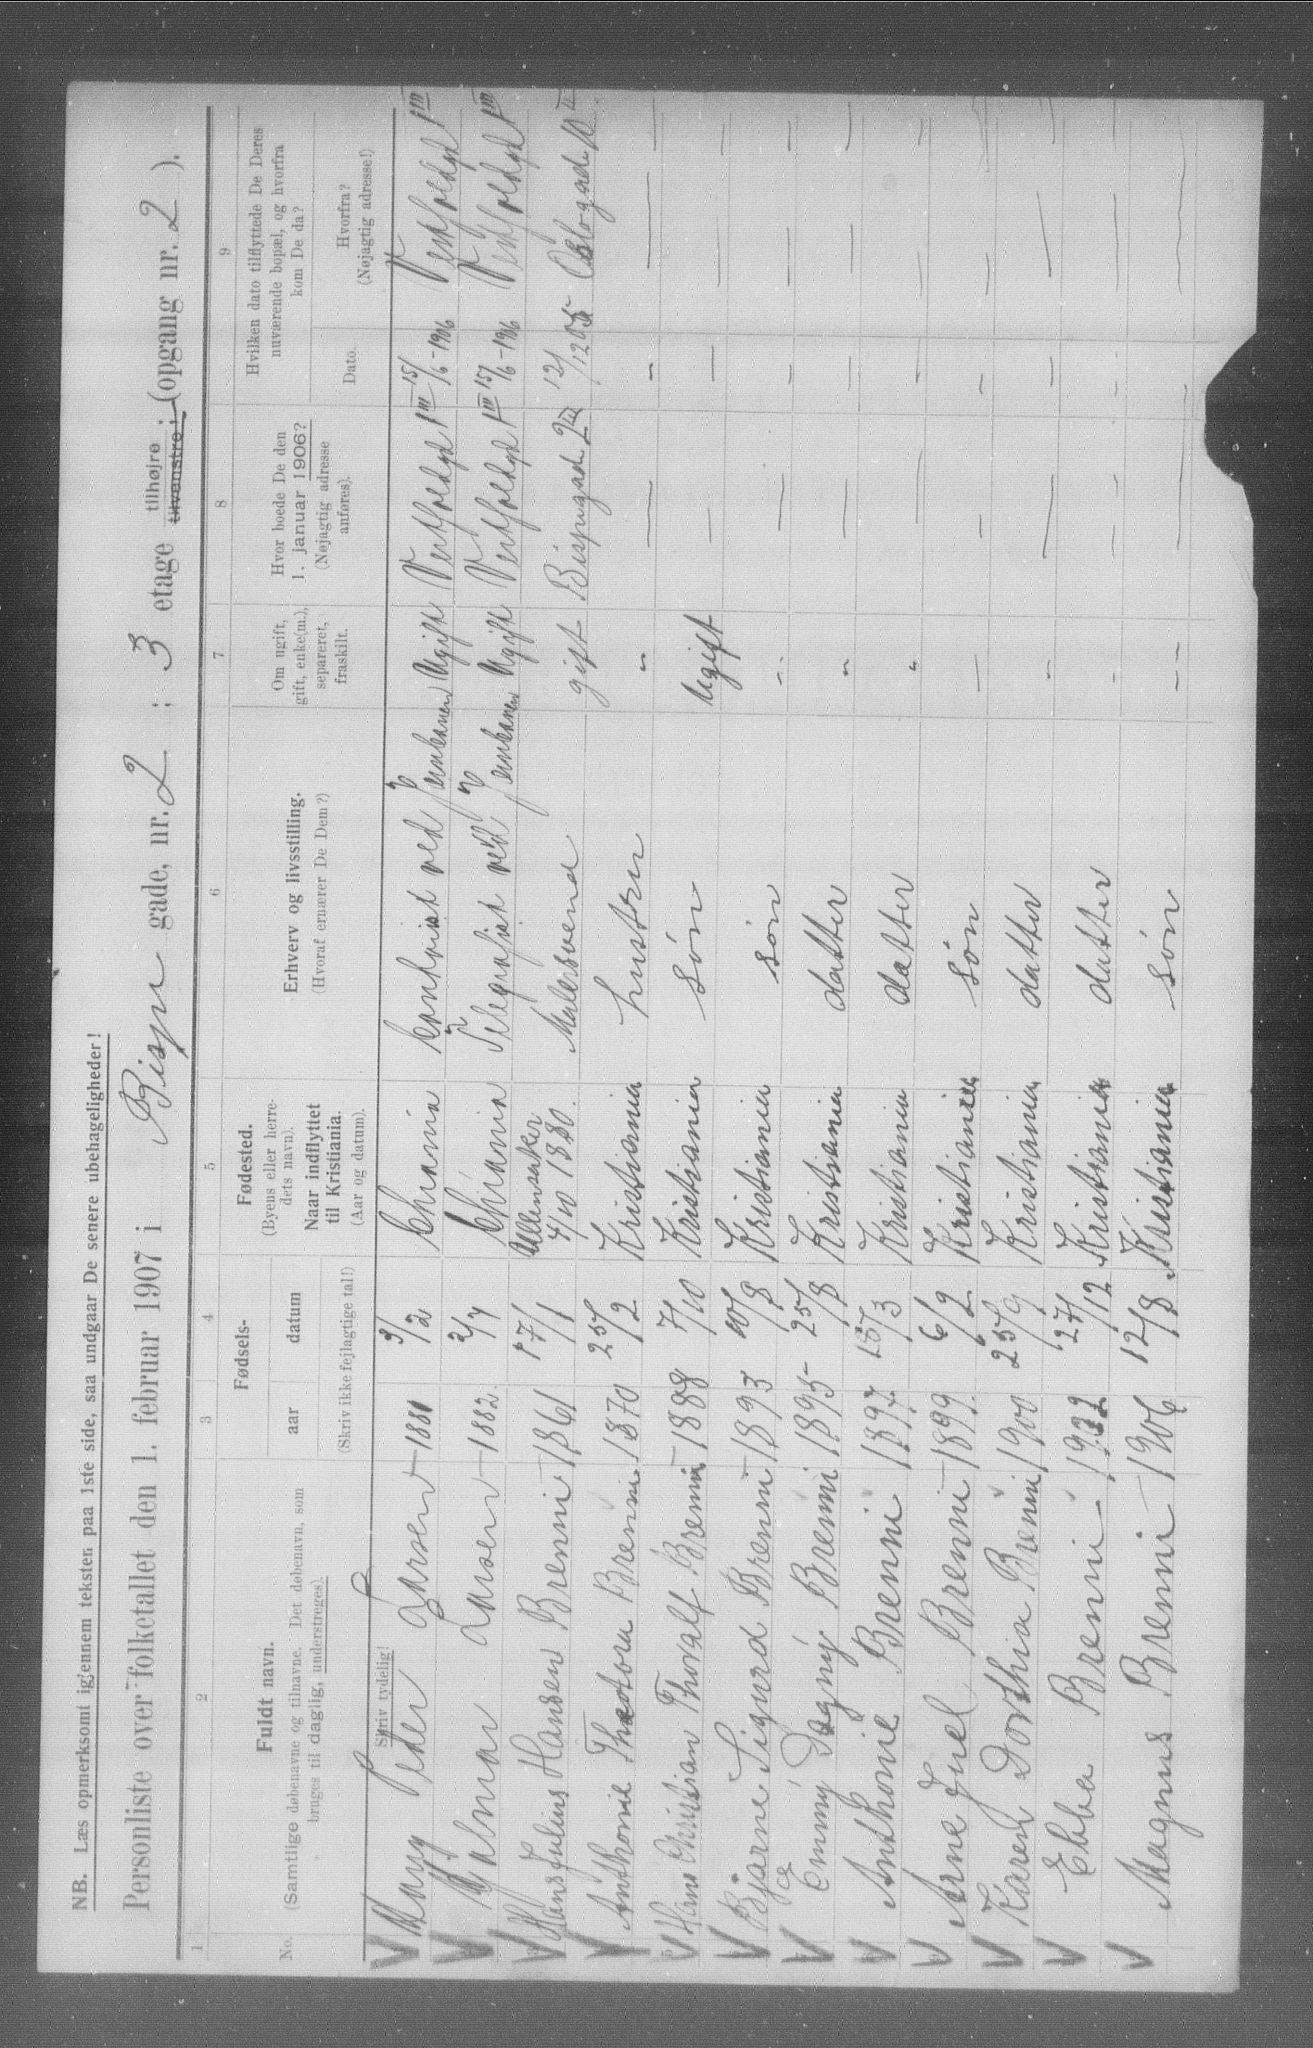 NB. Læs opmerksomt igjennem teksten paa 1ste side, saa undgaar De senere ubehageligheder!
Personliste over folketallet den 1. februar 1907 i Bispe gade, nr. 2 ; 3 etage tilhøjre tilvenstre ; (opgang nr. 2 ).
1 2 3 4 5 6 7 8 9
No. Fuldt navn. (Samtlige døbenavne og tilnavne. Det døbenavn, som bruges til daglig, understreges). Skriv tydelig!
Fødsels- aar datum (Skriv ikke fejlagtige tal!)
Fødested. (Byens eller herredets navn). Naar indflyttet til Kristiania. (Aar og datum).
Erhverv og livsstilling. (Hvoraf ernærer De Dem?)
Om ugift, gift, enke(m.), separeret, fraskilt.
Hvor boede De den 1. januar 1906? (Nøjagtig adresse anføres).
Hvilken dato tilflyttede De Deres nuværende bopæl, og hvorfra kom De da?
Dato. Hvorfra? (Nøjagtig adresse!)
Peder Larsen 1880 3/2 Chriania ved Jernbanen Ugift Vestfoldgd 1 III 15/6-1906 Vestfoldgd 1 III
Hjalmar Larsen 1882. 2/4 Chriania Telegrafist ved Jernbanen Ugift Vestfoldgd 1 III 15/6-1906 Vestfoldgd 1 III
Hans Julius Hansen Brenni 1861 17/1 Ullensaker 4/10 1880. Malersvend gift Bispegade 2 III 12/12 05 Oslogade 10
Anthonie Theodora Brenni 1870 25/2 Kristiania hustru " — " —
Hans Christian Thoralf Brenni 1888 7/10 Kristiania søn Ugift — — —
Bjarne Sigurd Brenni 1893 10/8 Kristiania søn " — — —
Emmy Dagny Brenni 1895 25/8 Kristiania datter " — — —
Anthonie Brenni 1897 /3 Kristiania datter " — — —
Arne Juel Brenni 1899. 6/2 Kristiania søn — — — —
Karen Dorthia Brenni 1900 25/9 Kristiania datter " — — —
Ebba Brenni 27/12 Kristiania datter — — — —
Magnus Brenni 1906 12/8 Kristiania søn — — — —